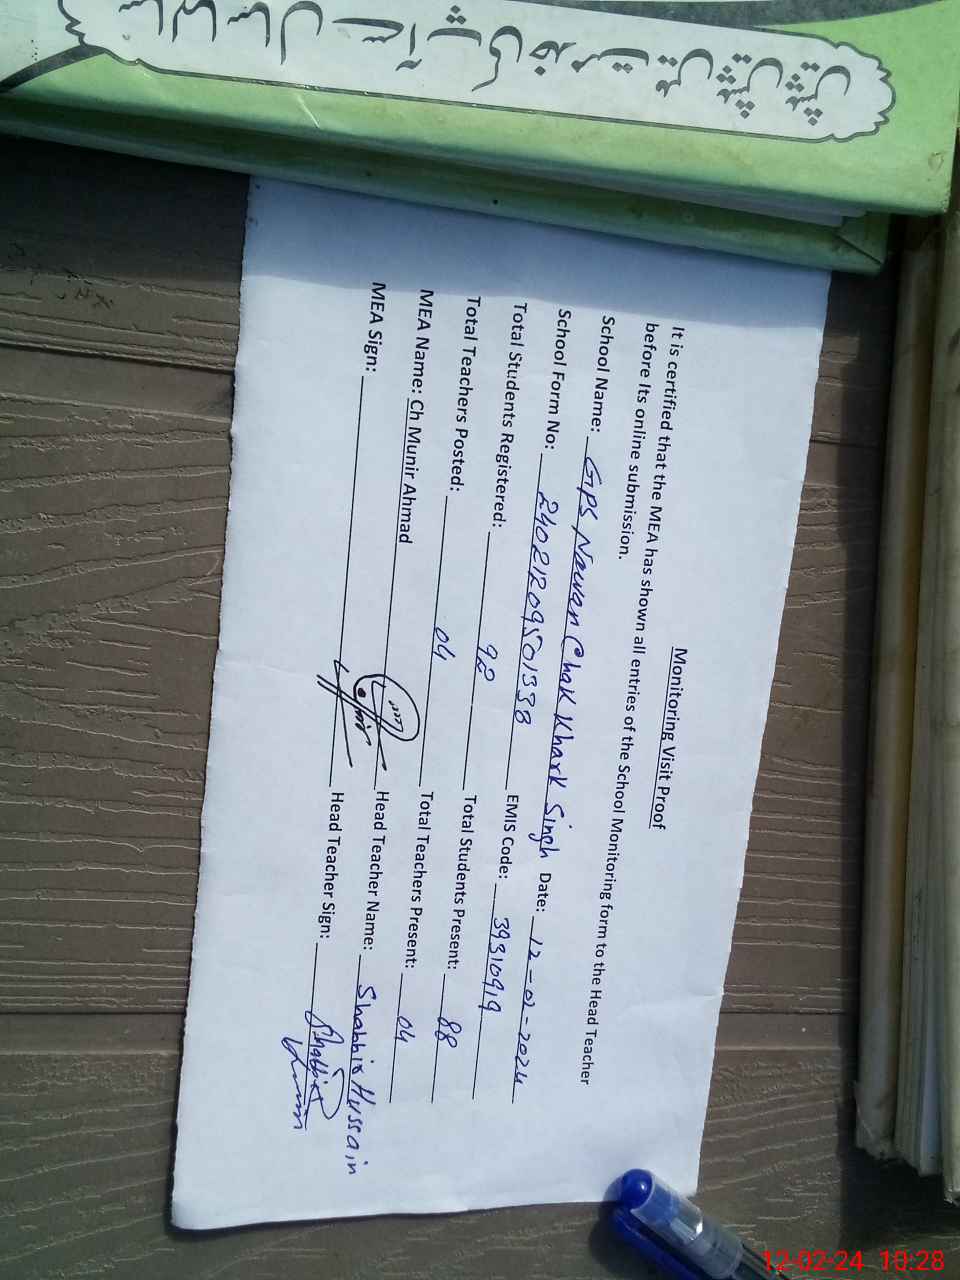 Monitoring Visit Proof
It is certified that the MEA has shown all entries of the School Monitoring form to the Head Teacher
before Its online submission.
School Name: GPS Nawan Chak Khark Singh Date: 12-02-2024
School Form No: 24021209501338 EMIS Code: 39310919
Total Students Registered: 92 Total Students Present: 88
Total Teachers Posted: 04 Total Teachers Present: 04
MEA Name: Ch Munir Ahmad Head Teacher Name: Shabbir Hussain
MEA Sign: Head Teacher Sign: Shabbir
12-02-24 10:28